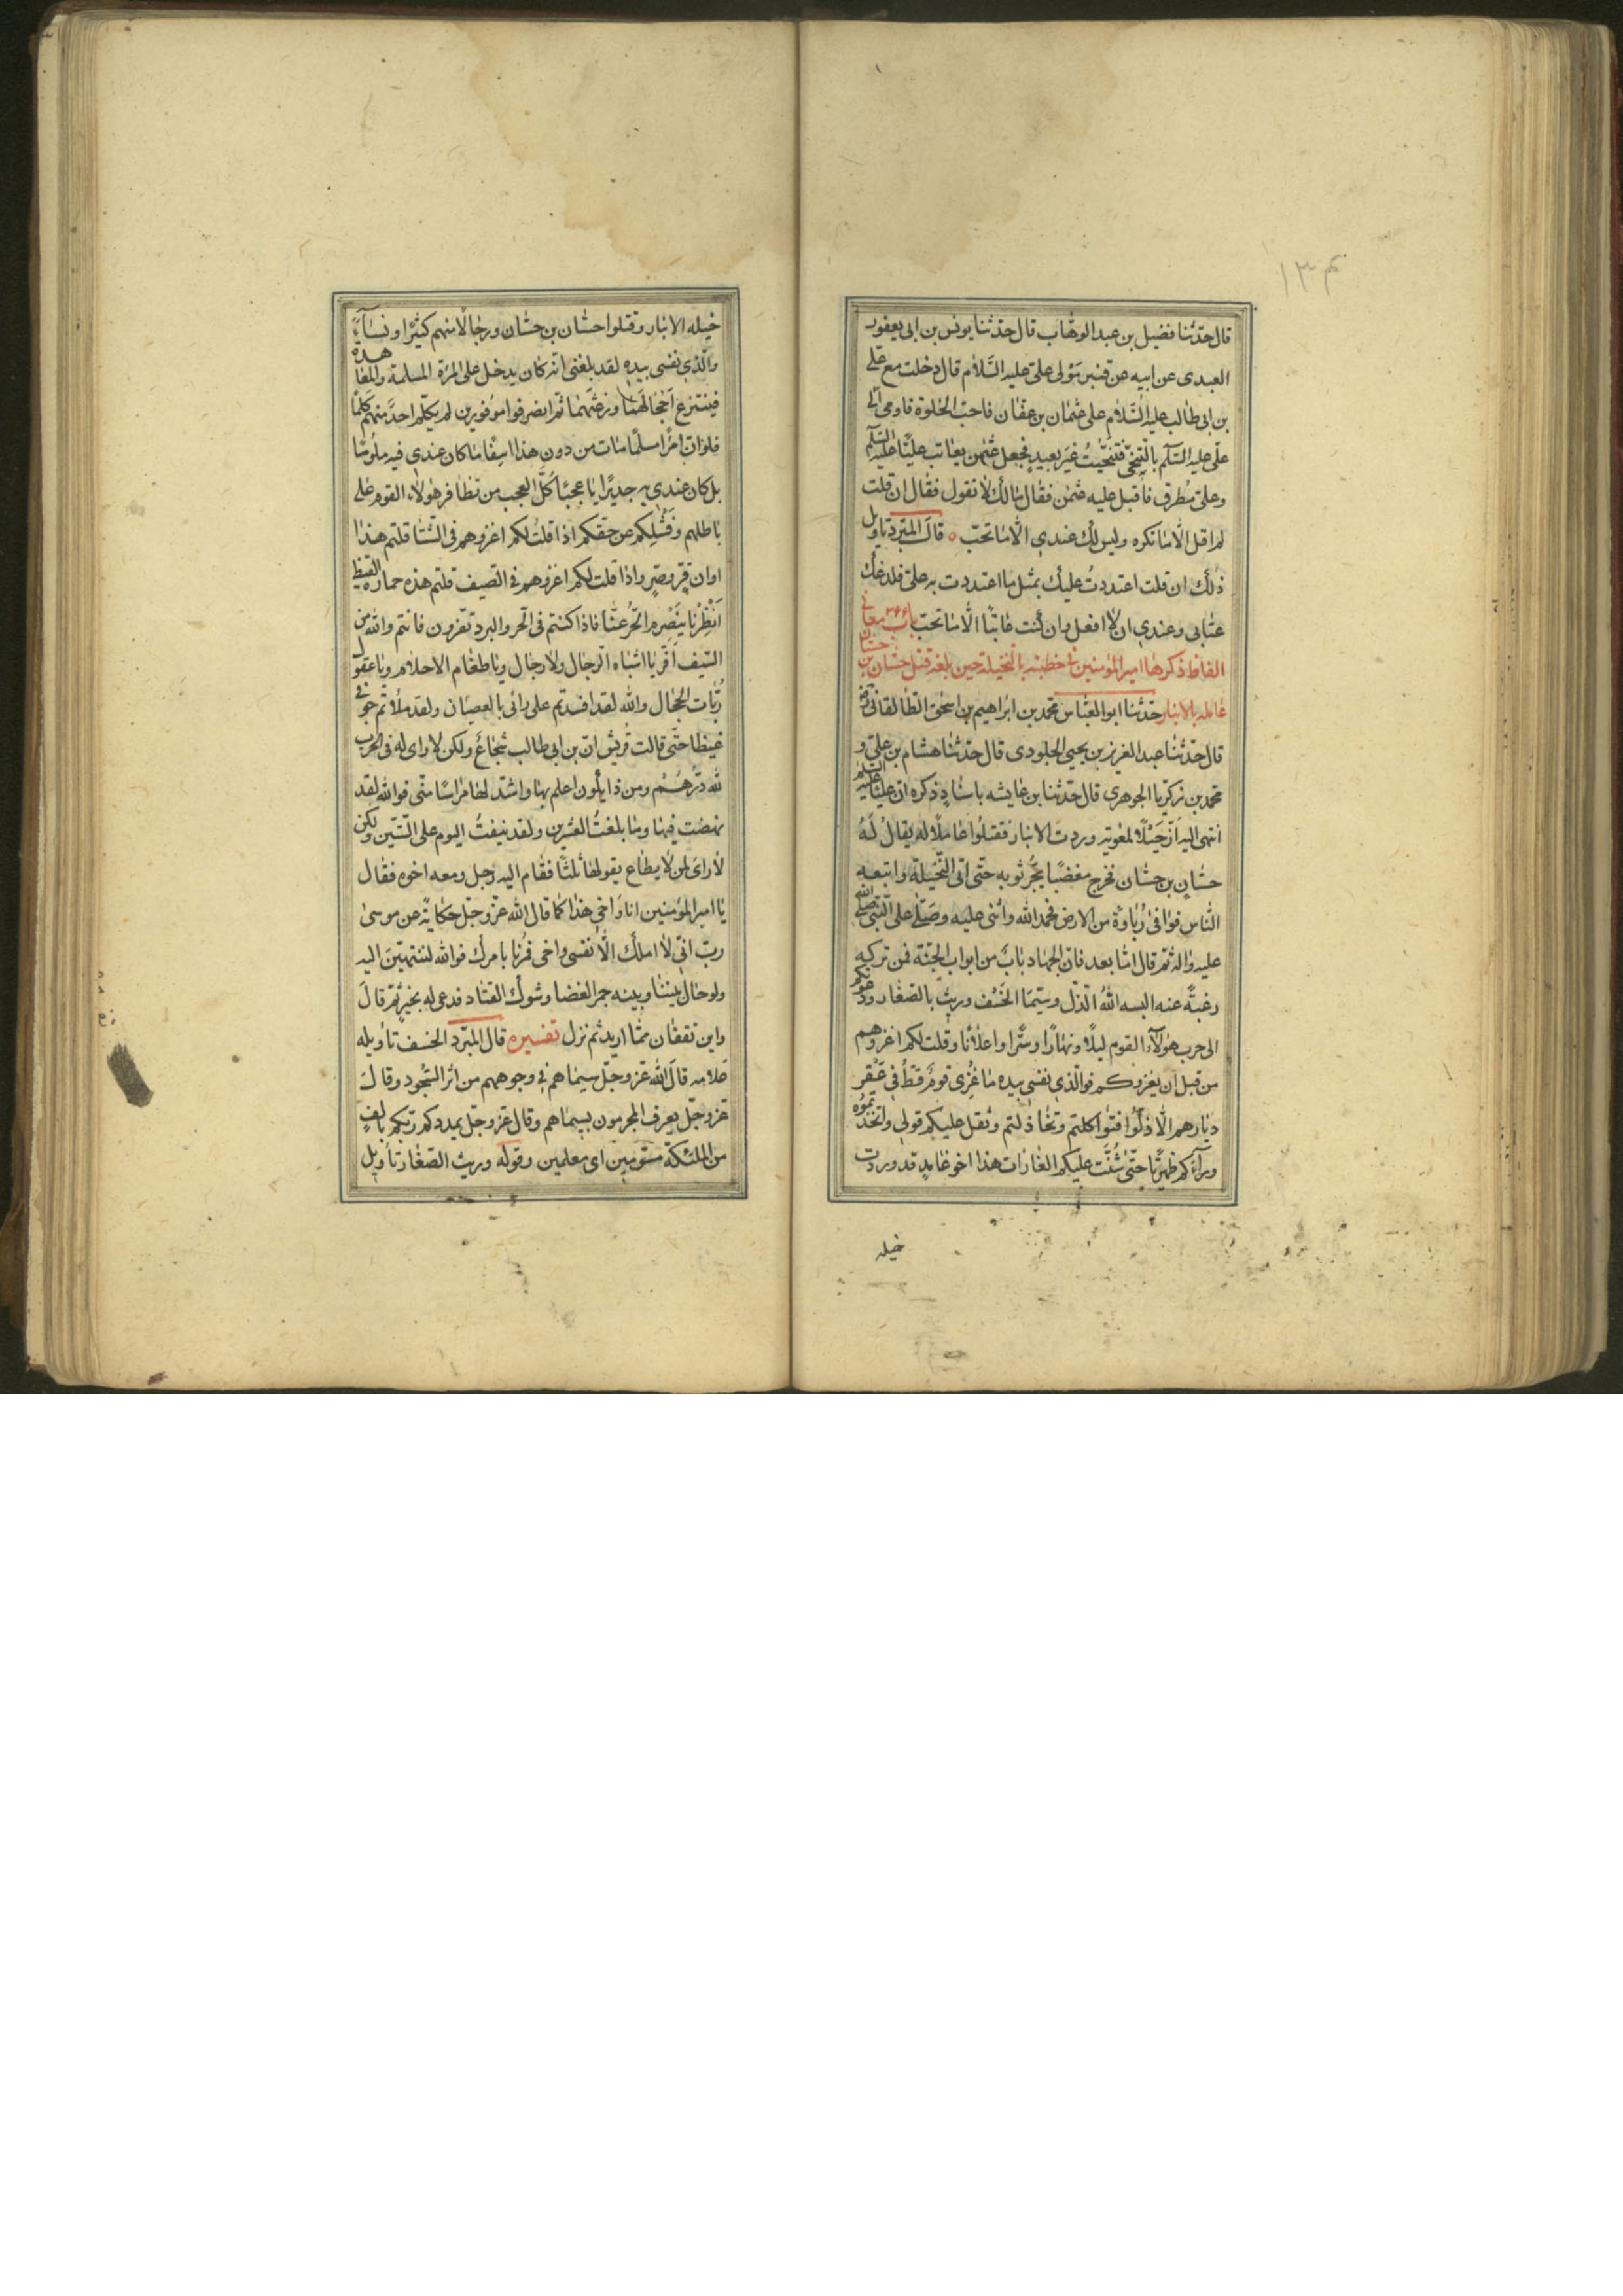 قال حدّثنا فضيل بن عبد الوهّاب قال حدّثنا يونس بن ابى يعفور
العبدى عن ابيه عن قنبر مولى علىّ عليه السَّلام قال دخلت مع على
بن ابى طالب عليه السّلام على عثمان بن عفّان فاحبّ الخلوة فاومى الىّ
علىّ عليه السّلم بالتنحّى فتنحّيتُ غيَر بعيدٍ فجعل عثمن يعاتب عليًّا عليه السّلم
وعلىّ مُطرق فاقبل عليه عثمن فقال مالك لا تقول فقال ان قلت
لم اقل الّا ما تكره وليس لك عندى الّا ما تحبّ ٥ قالَ المبّرد تاويل
ذلك ان قلت اعتددتُ عليك بمثل ما اعتددت به علىّ فلدغك
عتابى وعندى ان لا افعل وان كنت عاتبًا الّا ما تحبّ باب ٣٤٤ معانى
الفاظ ذكرها امير المؤمنين فى خطبته بالنخيلة حين بلغه قتل حسّان بن حسّان
عامله بالانبار حدّثنا ابو العبّاس محمد بن ابراهيم بن اسحٰق الطالقانى رض
قال حدّثنا عبد العزيز بن يحيى الجلودى قال حدّثنا هشام بن علىّ و
محمد بن زكريا الجوهرى قال حدّثنا بن عايشه باسنادٍ ذكره انّ عليّا عليه السلم
انتهى اليه انّ خَيْلًا لمعوية وردت الانبار فقتلُوا عاملًا له يقالُ لَهُ
حسّان بن حسّان فخرج مغضبًا يجُّر ثوبه حتّى اتى النّخيلة واتبعه
النّاس فوافى رُبٰاوَةً من الارض فحمد الله واثنى عليه وصَلّى على النّبى صلى الله
عليه واله ثم قال امّا بعد فانّ الجهاد بابٌ من ابواب الجنّة فمن تركه
رغبتًه عنه البسه اللهُ الذّل وسيمَا الخَسْف وديث بالصّغار ودعوتكم
الى حرب هٰولآء القوم ليلًا ونهارًا وسّرًا واعلانًا وقلت لكم اغزوهم
من قبل ان يغزوكم فوالّذى نفسى بيده ما غُزِى قومٌ قطُّ فى عَقْر
ديارهم الّا ذلّوا فتوٰاكلتم وتخاذلتم وثقل عليكم قولى واتخذتموه
ورآءكم ظهريًّا حتّى شُنَّت عليكم الغارات هذا اخو غامدٍ قد وردت
خيله
خيله الانبار وقتلوا حسّان بن حسّان ورجالًا منهم كثيًرا ونسآءً
والّذى نفسى بيده لقد بلغنى انّه كان يدخل على المرة المسلمة والمعاهدة
فينتزع احجالَهما ورعثَهما ثمّ انصرفوا موُفورين لم يكلّم احدٌ منهم كَلمًا
فلو انّ امرًأ مسلمًا مات من دون هذا اسِفًا ما كان عندى فيه ملُومًا
بل كان عندى به جديًرا يا عجبًا كُلّ العجب من تظافر هٰولاء القوم على
باطلهم وفَشْلِكم عن حقّكم اذا قلتُ لكم اغزوهم فى الشّتا قلتم هذا
اوان قّرٍ وصّرٍ واذا قلت لكم اغزوهم فى الصّيف قلتم هذه حمارّه القيظ
اَنْظِرْنا يَنْصَرِم الحّرُ عنّا فاذا كنتم فى الحّر والبرد تفّرون فانتم والله من
السّيف اَفّر يا اشباه الّرجال ولا رجال ويا طغام الاحلام ويا عقول
رُبّات الحجال والله لقد افسدتم على رائى بالعصيان ولقد ملأتم جوفى
غيظا حتّى قالت قريش انّ بن ابى طالب شجاعٌ ولكن لا راى له فى الحرب
لله دَرُّهُمْ ومن ذا يكون اعلم بها واشدّ لها مراسًا منّى فوالله لقد
نهضت فيها وما بلغتُ العشرين ولقد نيفتُ اليوم على السّتّين ولكن
لا راىَ لمن لا يطاع يقولها ثلثًا فقام اليه رجل ومعه اخوه فقال
يا امير المؤمنين انا واخى هذا كما قال الله عزّ وجلّ حكايةً عن موسىٰ
ربّ انّى لا املك الّا نفسى واخى فمُرنا بامرك فوالله لننتهيّنَ اليه
ولو حال بيننا وبينه جمر الغضا وشوك القتاد فدعى له بخيرٍ ثم قالَ
واين تقفان مّما اريد ثم نزل تفسيره قال المبّرد الخسف تاويله
علامه قالَ الله عزّ وجلّ سيماهم فى وجوههم من اثر السّجود وقالَ
عزّ وجلّ يعرف المجرمون بسيماهم وقال عزّ وجلّ يمددكم ربّكم بالفٍ
من الملئكة مسّومين اى معلمين وقوله وديث الصّغار تاويل